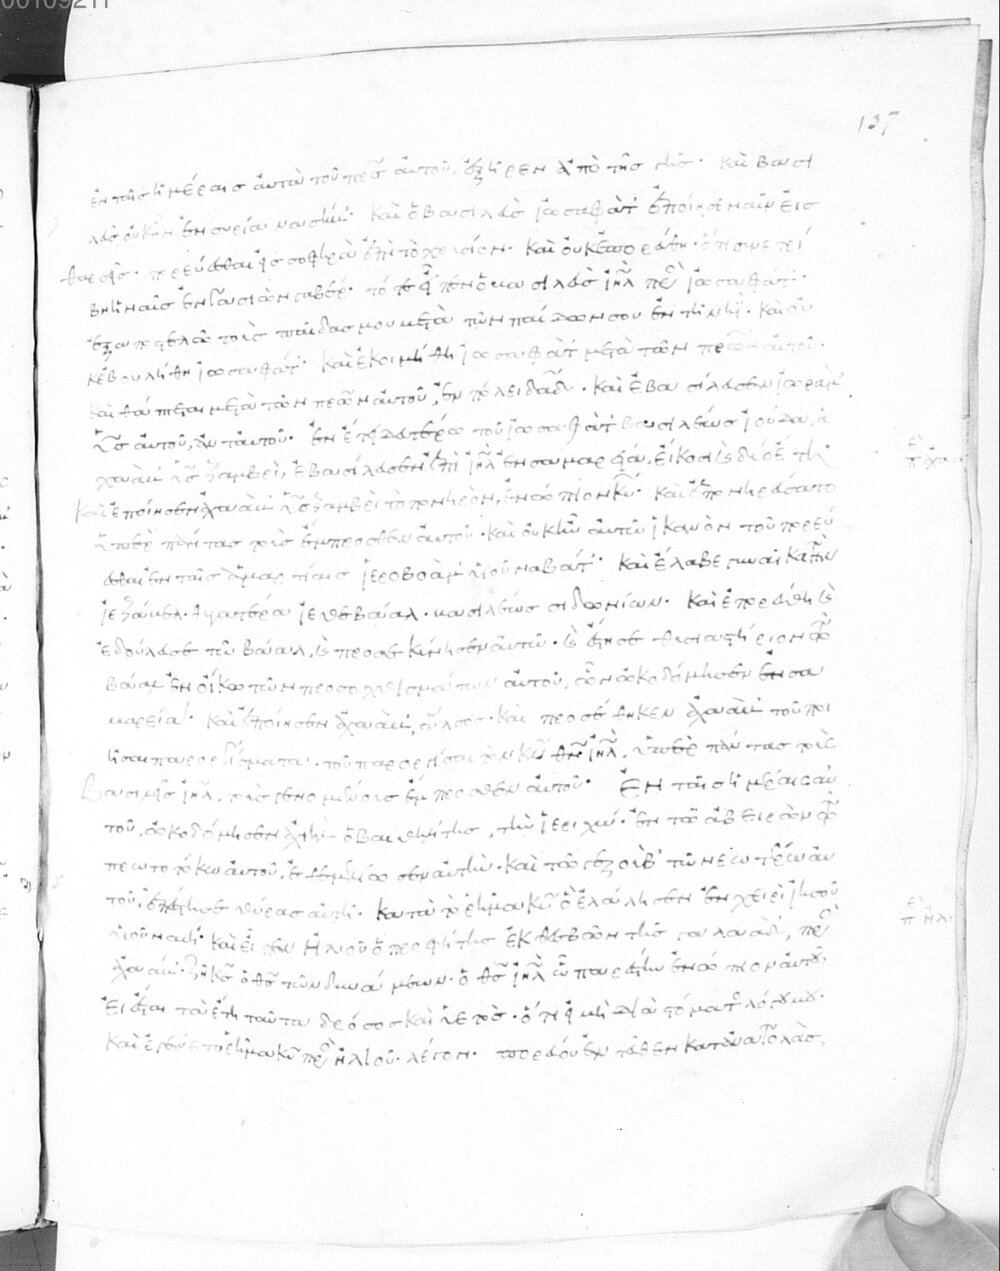 00109211
137
ἐν ταῖς ἡμέραις ἀσὰ τοῦ πρς αὐτοῦ, ἐξῆρεν ἀπὸ τῆς γῆς· καὶ βασι
λεὺς οὐκ ἦν ἐν συρία νασήβ· καὶ ὁ βασιλεὺς ἰωσαφὰτ ἐποίησε ναῦν εἰς
θαρσῆς· πορεύεσθαι εἰς σοφηρὰ ἐπὶ τὸ χρυσίον· καὶ οὐκ ἐπορεύθη· ὅτι συνετρί
βη ἡ ναῦς ἐν γασιὼν γαβέρ· τότε εἶπεν ὁ βασιλεὺς ἰηλ πρὸς ἰωσαφάτ·
ἐξαποστελῶ τοὺς παῖδας μου μετὰ τῶν παίδων σου ἐν τῆ νηΐ· καὶ οὐ
κ ἐβουλήθη ἰωσαφάτ· καὶ ἐκοιμήθη ἰωσαφὰτ μετὰ τῶν πρων αὐτοῦ·
καὶ θάπτεται μετὰ τῶν πρων αὐτοῦ, ἐν πόλει δαδ· καὶ ἐβασίλευσεν ἰωρὰμ
υς αὐτοῦ, ἀντ' αὐτοῦ· ἐν ἔτει δευτέρω τοῦ ἰωσαφὰτ βασιλέως ἰούδα, ἀ
χαὰβ υς ζαμβρὶ, ἐβασίλευσεν ἐπὶ ἰηλ ἐν σαμαρεία, εἴκοσι καὶ δύο ἔτη·
καὶ ἐποίησεν ἀχαὰβ υς ζαμβρὶ τὸ πονηρὸν, ἐνώπιον κυ· καὶ ἐπονηρεύσατο
ὑπὲρ πάντας τοὺς ἔμπροσθεν αὐτοῦ· καὶ οὐκ ἦν αὐτῶ ἱκανὸν τοῦ πορεύ
εσθαι ἐν ταῖς ἁμαρτίαις ἱεροβοὰμ υἱοῦ ναβάτ· καὶ ἔλαβε γυναῖκα τὴν
ἰεζάβελ· θυγατέρα ἰεθεβάαλ· βασιλέως σιδωνίων· καὶ ἐπορεύθη καὶ
ἐδούλευσε τῶ βάαλ, καὶ προσεκύνησεν αὐτῶ· καὶ ἔστησε θυσιαστήριον τῶ
βάαλ ἐν οἴκω τῶν προσοχθισμάτων αὐτοῦ, ὃν ὠκοδόμησεν ἐν σα
μαρεία· καὶ ἐποίησεν ἀχαὰβ, ἄλσος· καὶ προσέθηκεν ἀχαὰβ τοῦ ποι
ῆσαι παροργίσματα· τοῦ παροργίσαι τὸν κν θν ἰηλ, ὑπὲρ πάντας τοὺς
βασιλεῖς ἰηλ, τοὺς γενομένους ἔμπροσθεν αὐτοῦ· ἐν ταῖς ἡμέραις αὐ
τοῦ, ὠκοδόμησεν ἀχιὴλ ὁ βαιθηλίτης, τὴν ἱεριχώ· ἐν τῶ ἀβειρὼν τῶ
πρωτοτόκω αὐτοῦ, ἐθεμελίωσεν αὐτήν· καὶ τῶ σεγοὺβ τῶ νεωτέρω αὐ
τοῦ, ἐπέστησε θύρας αὐτῆ· κατὰ τὸ ῥῆμα κυ ὃ ἐλάλησεν ἐν χειρὶ ἰησοῦ
υἱοῦ ναυῆ· καὶ εἶπεν ἡλιοῦ ὁ προφήτης ἐκ θεσβῶν τῆς γαλαὰδ, πρὸς
ἀχαάβ· ζῆ κς ὁ θς τῶν δυνάμεων· ὁ θς ἰηλ ὧ παρέστην ἐνώπιον αὐτοῦ,
εἰ ἔσται τὰ ἔτη ταῦτα δρόσος καὶ ὑετός· ὅτι εἰ μὴ διὰ στόματος λόγου μου·
καὶ ἐγένετο ῥῆμα κυ πρὸς ἡλιοῦ· λέγον· πορεύου ἐντεῦθεν κατὰ ἀνατολὰς,